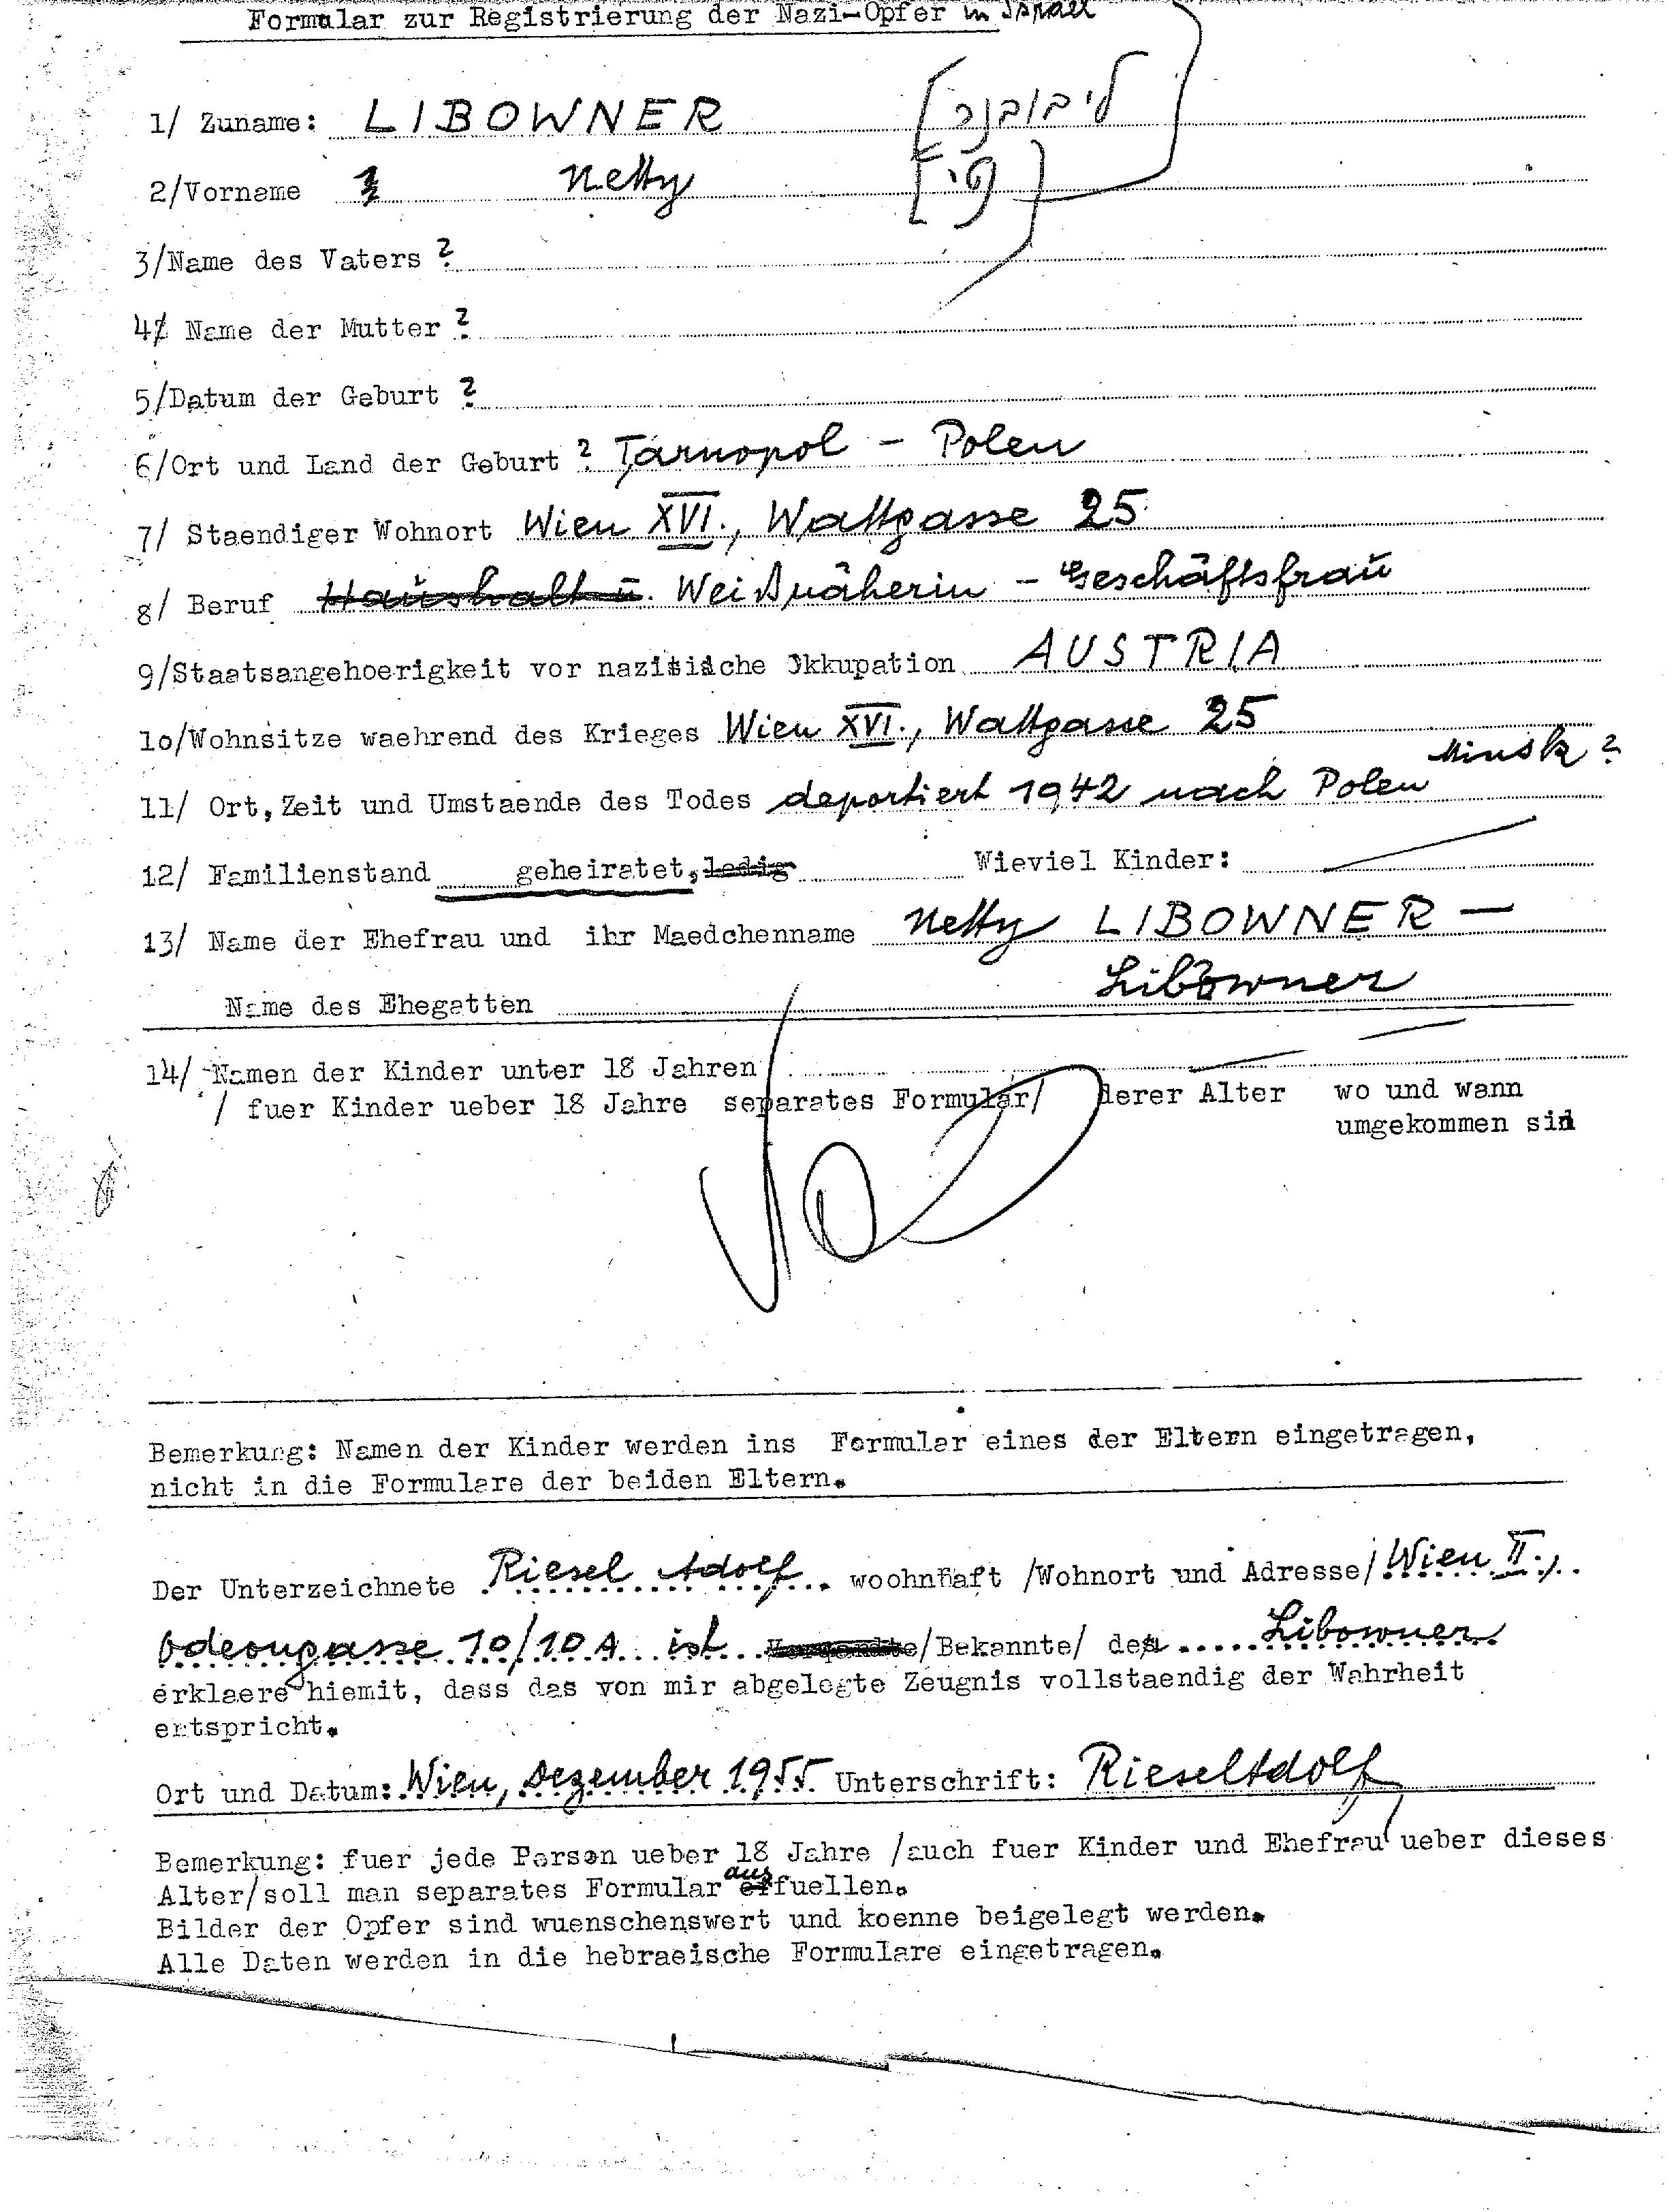 Formular zur Registrierung der Nazi-Opfer in Israel
1/ Zuname: LIBOWNER [ליבובנר]
2/Vorname Netty
3/Name des Vaters ?
4/ Name der Mutter ?
5/Datum der Geburt ?
6/Ort und Land der Geburt ? Tarnopol - Polen
7/ Staendiger Wohnort Wien XVI., Wattgasse 25
8/ Beruf Haushalt u. Weißnäherin - Geschäftsfrau
9/Staatsangehoerigkeit vor nazistische Okkupation AUSTRIA
10/Wohnsitze waehrend des Krieges Wien XVI., Wattgasse 25
Minsk ?
11/ Ort, Zeit und Umstaende des Todes deportiert 1942 nach Polen
12/ Familienstand geheiratet, ledig Wieviel Kinder: —
13/ Name der Ehefrau und ihr Maedchenname Netty LIBOWNER —
Name des Ehegatten Libowner
14/ Namen der Kinder unter 18 Jahren
/ fuer Kinder ueber 18 Jahre separates Formular/ derer Alter wo und wann
umgekommen sin
Bemerkung: Namen der Kinder werden ins Formular eines der Eltern eingetragen,
nicht in die Formulare der beiden Eltern.
Der Unterzeichnete Riesel Adolf woohnhaft /Wohnort und Adresse/ Wien II.,
Odeongasse 10/10A ist Verwandte/Bekannte/ der Libowner
erklaere hiemit, dass das von mir abgelegte Zeugnis vollstaendig der Wahrheit
entspricht.
Ort und Datum: Wien, Dezember 1955 Unterschrift: Riesel Adolf
Bemerkung: fuer jede Person ueber 18 Jahre /auch fuer Kinder und Ehefrau ueber dieses
Alter/soll man separates Formular ausfuellen.
Bilder der Opfer sind wuenschenswert und koenne beigelegt werden.
Alle Daten werden in die hebraeische Formulare eingetragen.